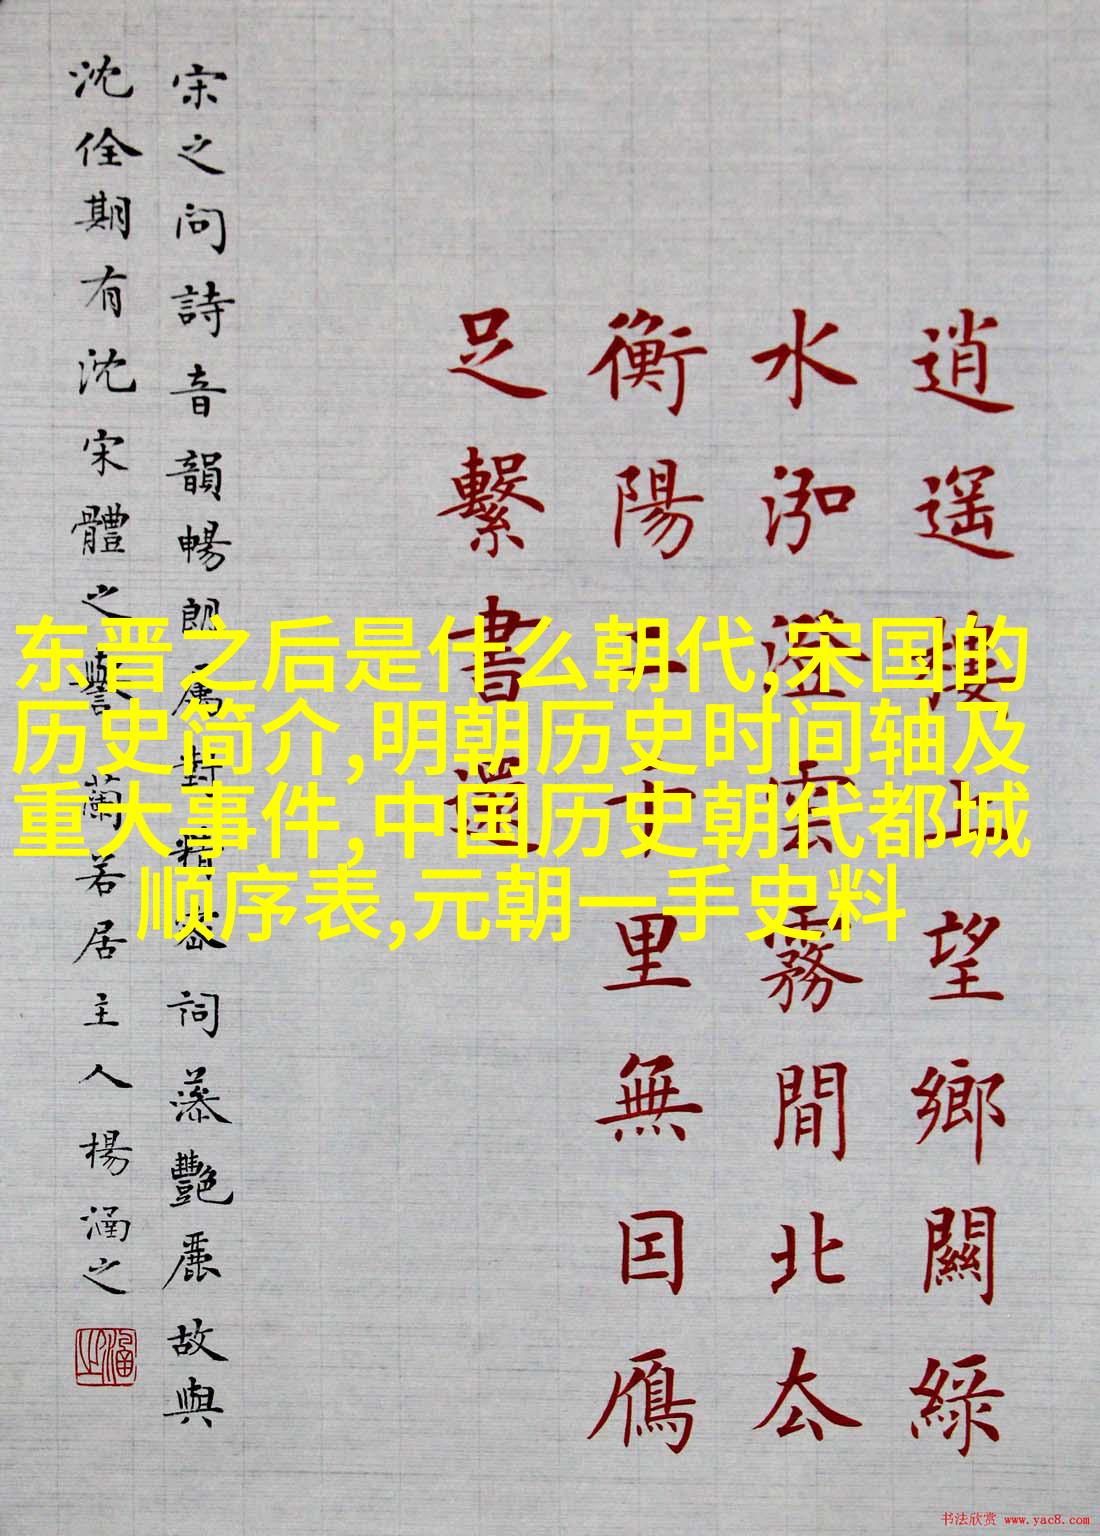 逍遥樓上望鄉關綠
水泓澄雲霧間北厺
衡陽二千里無囙鴈
足繫書還
宋之問詩音韻暢朗属對精密詞藻艷麗故與
沈佺期有沈宋體之譽 蘭若居主人楊涵之
涵之
东晋之后是什么朝代,宋国的
历史简介,明朝历史时间轴及
重大事件,中国历史朝代都城
顺序表,元朝一手史料
书法欣赏 www.yac8.com